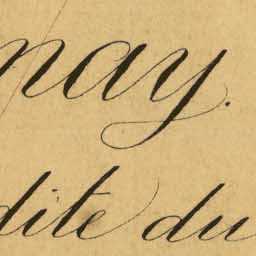 nay.
dite du